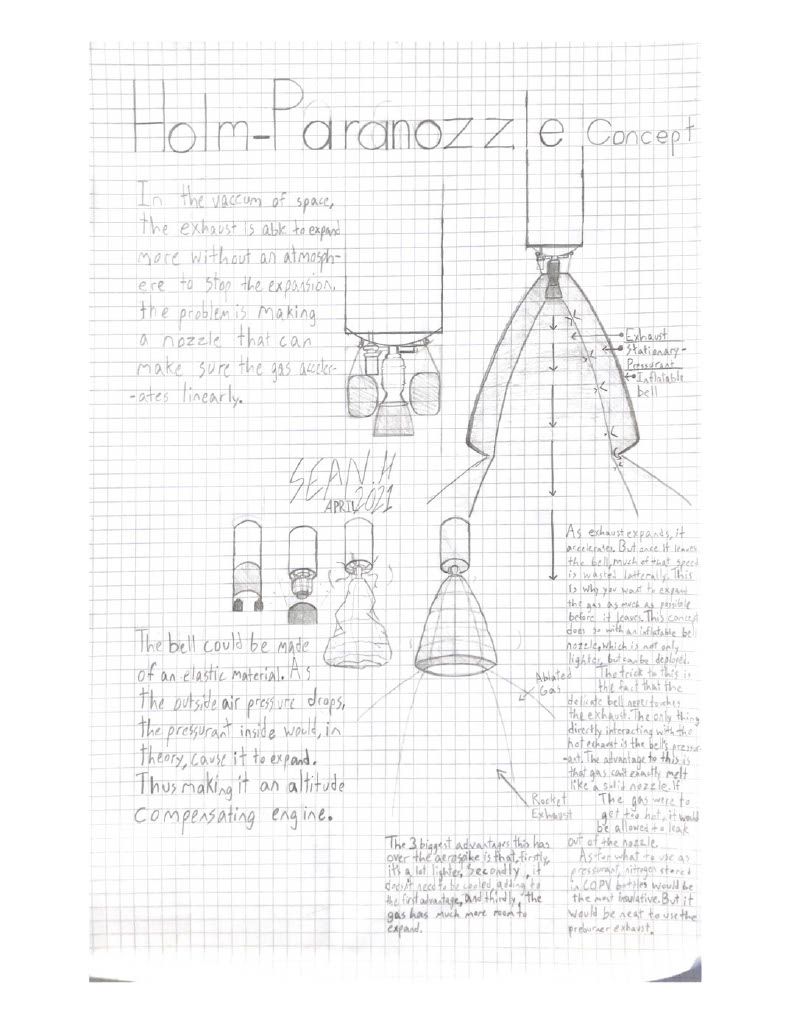 Holm-Paranozzle Concept
In the vaccum of space,
the exhaust is able to expand
more without an atmosph-
ere to stop the expansion,
the problem is making
a nozzle that can
make sure the gas acceler-
-ates linearly.
Exhaust
Stationary-
Pressurant
Inflatable
bell
SEAN.H
APRIL 2021
The bell could be made
of an elastic material. As
the outside air pressure drops,
the pressurant inside would, in
theory, cause it to expand.
Thus making it an altitude
compensating engine.
Ablated
Gas
Rocket
Exhaust
The 3 biggest advantages this has
over the aerospike is that, firstly,
it's a lot lighter, Secondly, it
doesn't need to be cooled, adding to
the first advantage, and thirdly, the
gas has much more room to
expand.
As exhaust expands, it
accelerates. But once it leaves
the bell, much of that speed
is wasted latterally. This
is why you want to expand
the gas as much as possible
before it leaves. This concept
does so with an inflatable bell
nozzle, which is not only
lighter, but can be deployed.
The trick to this is
the fact that the
delicate bell never touches
the exhaust. The only thing
directly interacting with the
hot exhaust is the bell's pressur-
-ant. The advantage to this is
that gas can't exactly melt
like a solid nozzle. If
The gas were to
get too hot, it would
be allowed to leak
out of the nozzle.
As for what to use as
pressurant, nitrogen stored
in COPV bottles would be
the most insulative. But it
would be neat to use the
preburner exhaust.